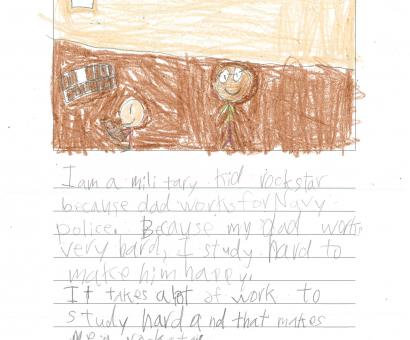 I am a military kid rockstar
because dad works for Navy
police. Because my dad works
very hard, I study hard to
make him happy.
It takes alot of work to
study hard and that makes
me a rockstar